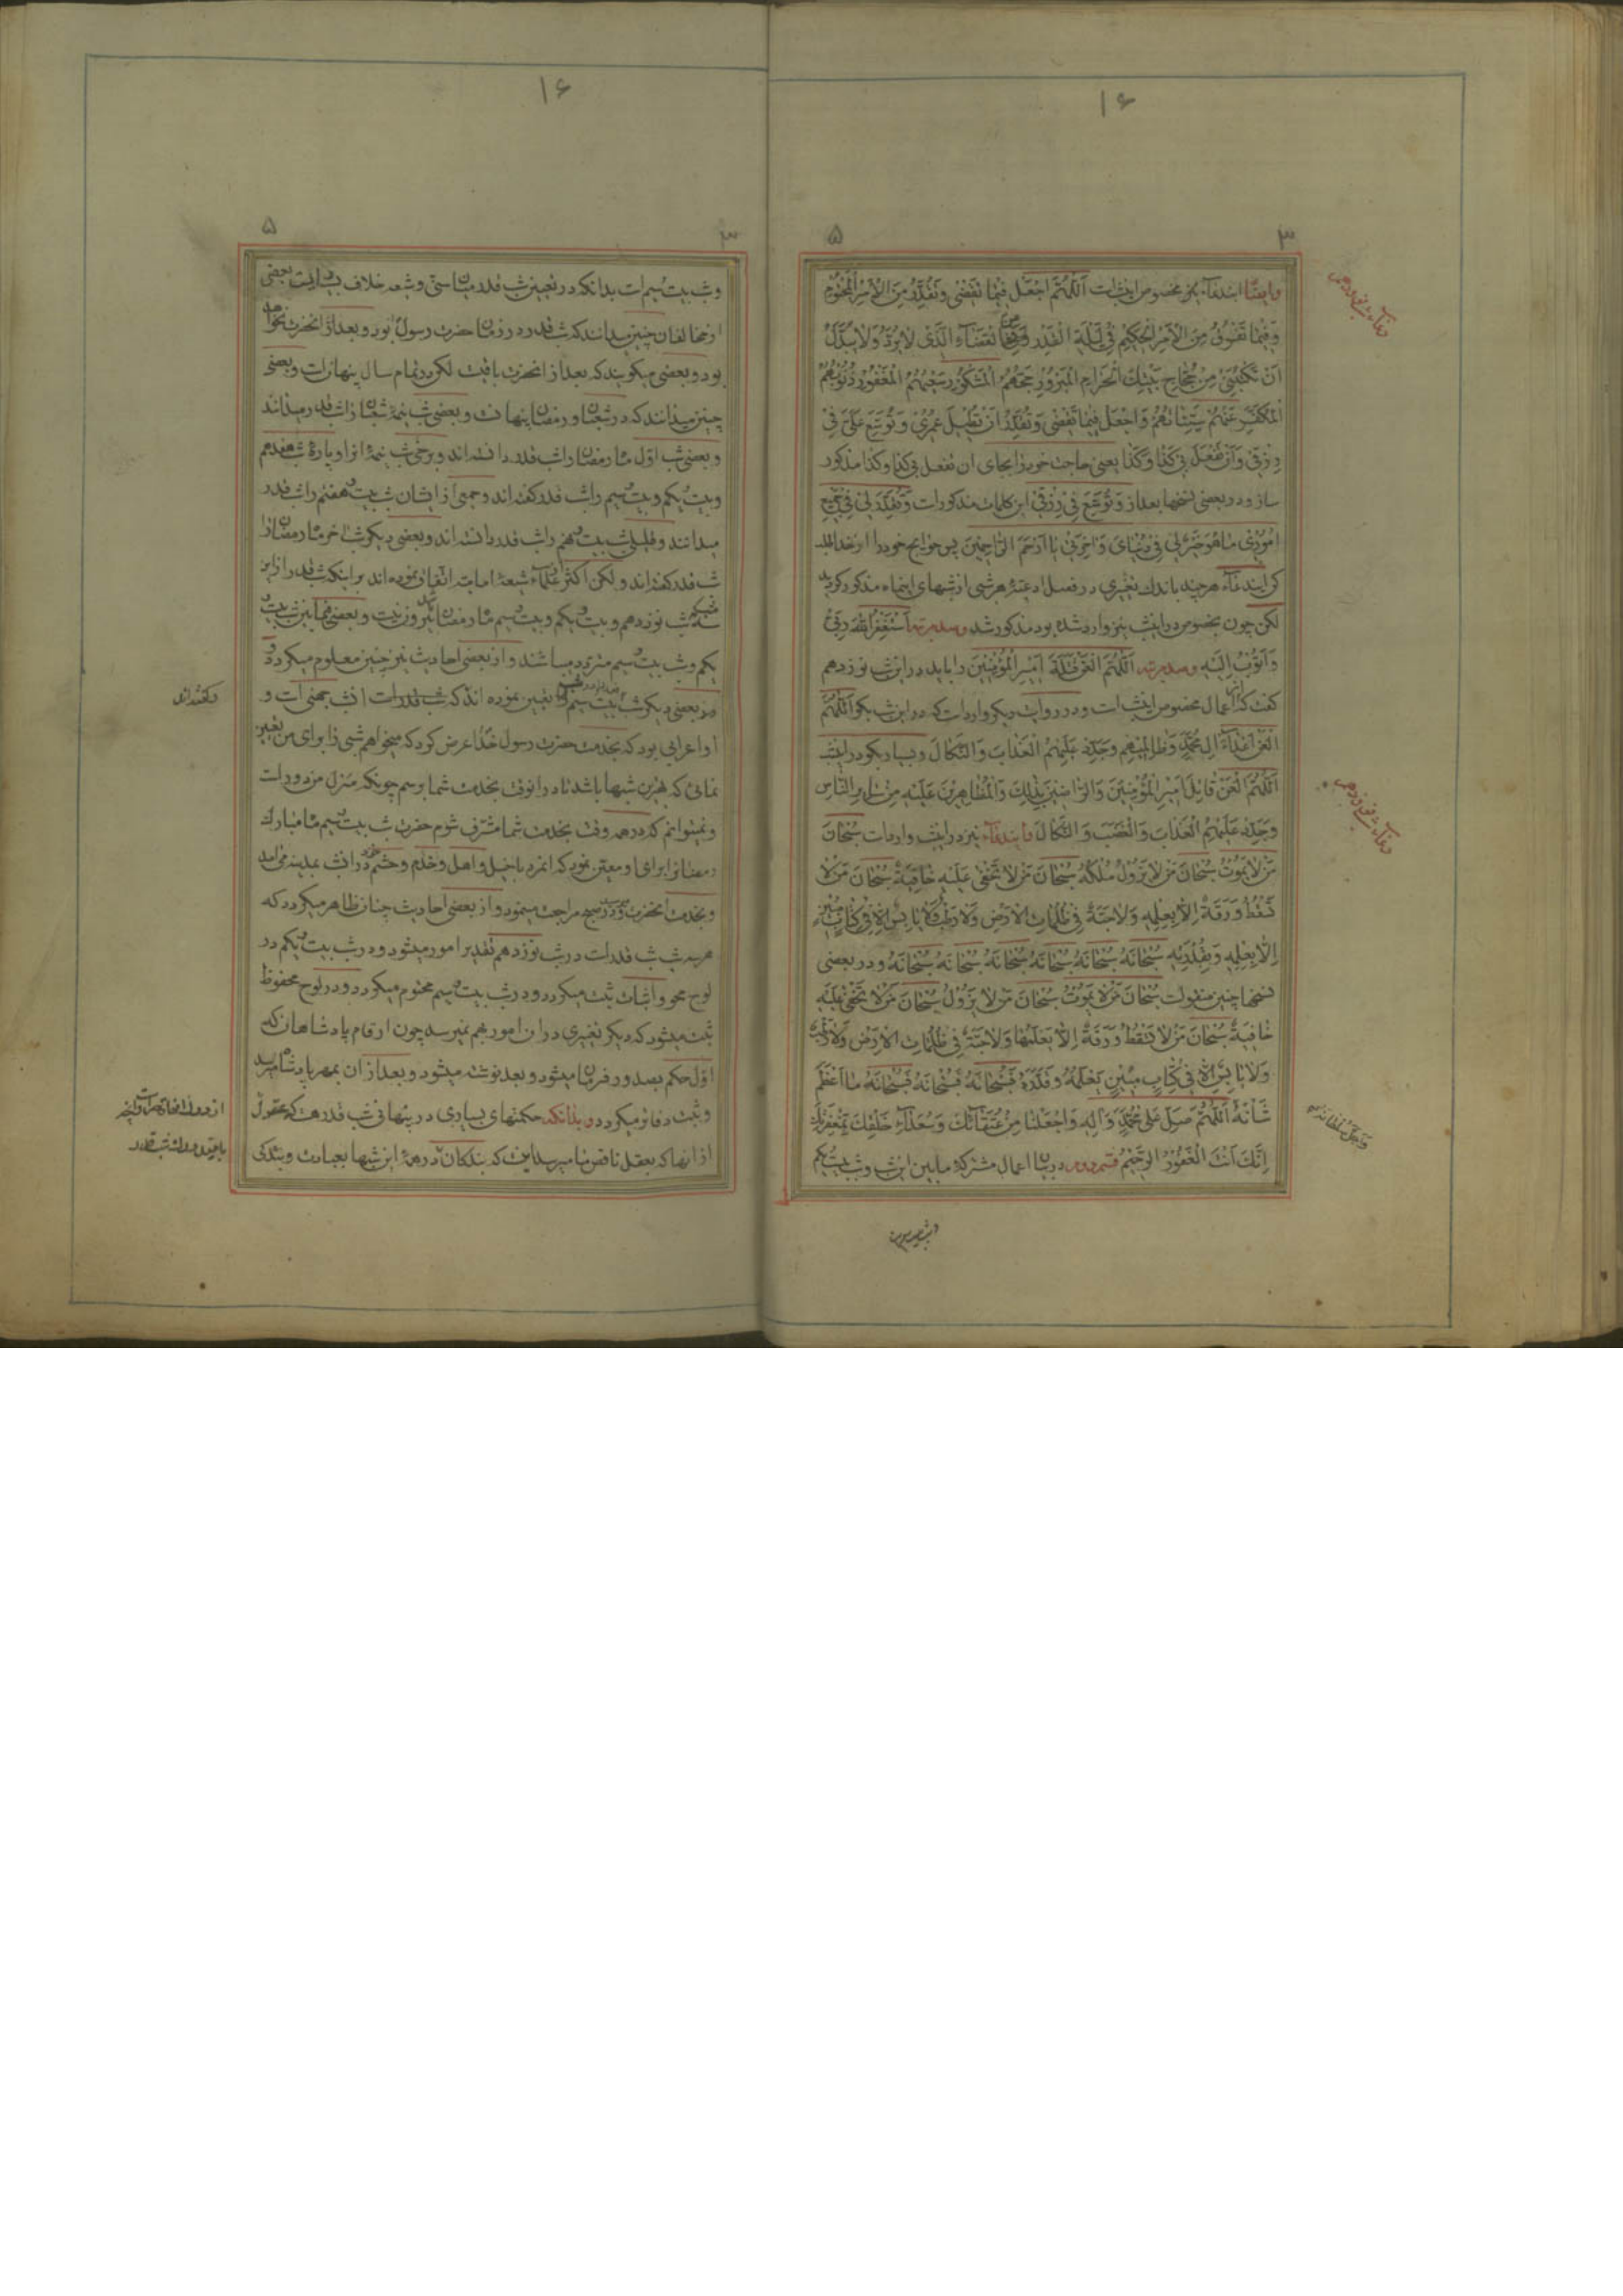 ۱۶
۳
۵
وایضا ایندعاء نیز مخصوص اینشب است اَللّهُمَّ اجْعَلْ فیما تَقْضی وَتُقَدِّرُ مِنَ الْاَمْرِ الْمَحْتُومِ
وَفیما تَفْرُقُ مِنَ الْاَمْرِ الْحَکیمِ فی لَیْلَةِ الْقَدْرِ وَفِی الْقَضاءِ الَّذی لا یُرَدُّ وَلا یُبَدَّلُ
اَنْ تَکْتُبَنی مِنْ حُجّاجِ بَیْتِكَ الْحَرامِ الْمَبْرُورِ حَجُّهُمُ الْمَشْکُورِ سَعْیُهُمُ الْمَغْفُورِ ذُنُوبُهُمُ
الْمُکَفَّرِ عَنْهُمْ سَیِّئاتُهُمْ وَاجْعَلْ فیما تَقْضی وَتُقَدِّرُ اَنْ تُطیلَ عُمْری وَتُوَسِّعَ عَلَیَّ فی
رِزْقی وَاَنْ تَفْعَلَ بی کَذا وَکَذا یعنی حاجت خود را بجای ان تفعل بی کذا وکذا مذکور
سازد ودر بعضی نسخها بعد از وَتُوَسِّعَ فی رِزْقی این کلمات مذکورات وَتُقَدِّرَ لی فی جَمیعِ
اُمُوری ما هُوَ خَیْرٌ لی فی دُنْیایَ وَاٰخِرَتی یا اَرْحَمَ الرّاحِمینَ پس حوایج خود را از خدا طلب
کن ایندعاء هرچند باندك تغییری در فصل ادعیۀ هر شبی از شبهای اینماه مذکور کردید
لکن چون بخصوص در اینشب نیز وارد شده بود مذکور شد وصد مرتبه اَسْتَغْفِرُ اللهَ رَبّی
وَاَتُوبُ اِلَیْهِ وصد مرتبه اَللّهُمَّ الْعَنْ قَتَلَةَ اَمیرِ الْمُؤْمِنینَ را باید در این شب نوزدهم
کفت که از اعمال مخصوص اینشب است ودر روایت دیکر وارد است که در این شب بکو اَللّهُمَّ
الْعَنْ اَعْداءَ اٰلِ مُحَمَّدٍ وَظالِمیهِمْ وَجَدِّدْ عَلَیْهِمُ الْعَذابَ وَالنَّکالَ وبسیار بکو در اینشب
اَللّهُمَّ الْعَنْ قاتِلَ اَمیرِ الْمُؤْمِنینَ وَالرّاضینَ بِذلِكَ وَالْمُظاهِرینَ عَلَیْهِ مِنْ سایِرِ النّاسِ
وَجَدِّدْ عَلَیْهِمُ الْعَذابَ وَالْغَضَبَ وَالنَّکالَ وایندعاء نیز در اینشب وارد است سُبْحانَ
مَنْ لا یَمُوتُ سُبْحانَ مَنْ لا یَزُولُ مُلْکُهُ سُبْحانَ مَنْ لا تَخْفی عَلَیْهِ خافِیَةٌ سُبْحانَ مَنْ لا
تَسْقُطُ وَرَقَةٌ اِلّا بِعِلْمِهِ وَلا حَبَّةٌ فی ظُلُماتِ الْاَرْضِ وَلا رَطْبٌ وَلا یابِسٌ اِلّا فی کِتابٍ مُبینٍ
اِلّا بِعِلْمِهِ وَبِقُدْرَتِهِ سُبْحانَهُ سُبْحانَهُ سُبْحانَهُ سُبْحانَهُ سُبْحانَهُ سُبْحانَهُ ودر بعضی
نسخها چنین منقولست سُبْحانَ مَنْ لا یَمُوتُ سُبْحانَ مَنْ لا یَزُولُ سُبْحانَ مَنْ لا تَخْفی عَلَیْهِ
خافِیَةٌ سُبْحانَ مَنْ لا تَسْقُطُ وَرَقَةٌ اِلّا یَعْلَمُها وَلا حَبَّةٌ فی ظُلُماتِ الْاَرْضِ وَلا رَطْبٌ
وَلا یابِسٌ اِلّا فی کِتابٍ مُبینٍ یَعْلَمُهُ وَقَدَّرَهُ فَسُبْحانَهُ فَسُبْحانَهُ فَسُبْحانَهُ ما اَعْظَمَ
شَأْنَهُ اَللّهُمَّ صَلِّ عَلی مُحَمَّدٍ وَاٰلِهِ وَاجْعَلْنا مِنْ عُتَقائِكَ وَسُعَداءِ خَلْقِكَ بِمَغْفِرَتِكَ
اِنَّكَ اَنْتَ الْغَفُورُ الرَّحیمُ قسم دوم در بیان اعمال مشترکه مابین این شب وشب بیست یکم
دعاء شب نوزدهم
دعاء شب نوزدهم
۱۶
۳
۵
وشب بیست سیم است بدانکه در تعیین شب قدر میان سنی وشیعه خلاف بسیار است بعضی
از مخالفان چنین میدانند که شب قدر در زمان حضرت رسول بود وبعد از انحضرت نخواهد
بود وبعضی میکویند که بعد از انحضرت باقیست لکن در تمام سال پنهان است وبعضی
چنین میدانند که در شعبان ورمضان پنهانست وبعضی شب نیمۀ شعبان را شب قدر میدانند
وبعضی شب اول ماه رمضان را شب قدر دانسته اند وبرخی شب نیمۀ او را وپارۀ شب هفدهم
وبیست یکم وبیست سیم را شب قدر کفته اند وجمعی از ایشان شب بیست هفتم را شب قدر
میدانند وقلیلی شب بیست نهم را شب قدر دانسته اند وبعضی دیکر شب اخر ماه رمضان را
شب قدر کفته اند ولکن اکثر علماء شیعۀ امامیه اتفاق نموده اند بر اینکه شب قدر از این
سه شب نوزدهم وبیست یکم وبیست سیم ماه رمضان بیرون نیست وبعضی مابین شب بیست
یکم وشب بیست سیم متردد میباشند واز بعضی احادیث نیز چنین معلوم میکردد و
بعضی دیکر شب بیست سیم را تعیین نموده اند که شب قدر است انشب جهنی است و
او اعرابی بود که بخدمت حضرت رسول خدا عرض کرد که میخواهم شبی را برای من تعیین
نمائی که بهترین شبها باشد تا در انوقت بخدمت شما برسم چونکه منزل من دور است
ونمیتوانم که در هر وقت بخدمت شما مشرف شوم حضرت شب بیست سیم ماه مبارك
رمضان را برای او معین نمود که انمرد باخیل واهل وخدم وحشم خود در انشب بمدینه می‌امد
وبخدمت انحضرت ودر صبح مراجعت مینمود واز بعضی احادیث چنان ظاهر میکردد که
هر سه شب شب قدر است در شب نوزدهم تقدیر امور میشود ودر شب بیست یکم در
لوح محو واثبات ثبت میکردد ودر شب بیست سیم محتوم میکردد ودر لوح محفوظ
ثبت میشود که دیکر تغییری در ان امور بهم نمیرسد چون ارقام پادشاهان که
اول حکم بصدور فرمان میشود وبعد نوشته میشود وبعد از ان بمهر پادشاه میرسد
وثبت دفاتر میکردد وبدانکه حکمتهای بسیاری در پنهانی شب قدر هست که عقول
از انها که بعقل ناقص ما میرسد اینست که بندکان در همۀ این شبها بعبادت وبندکی